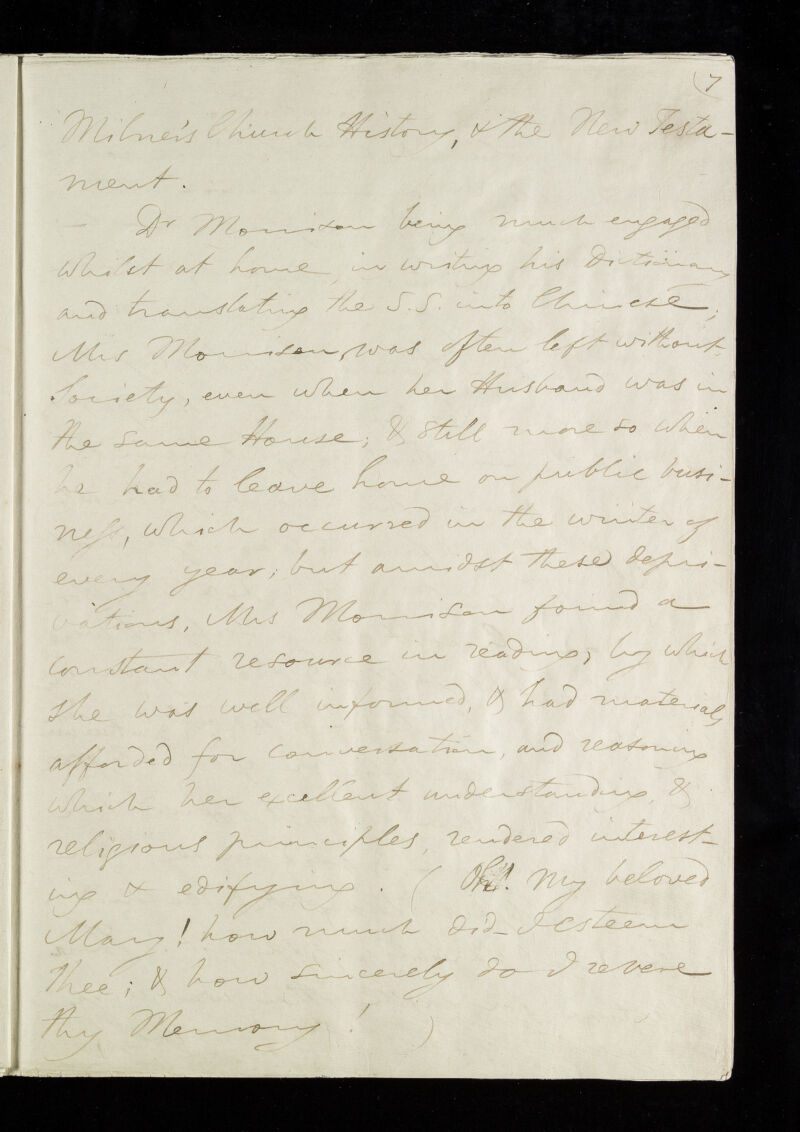 (7
Milner's Church History, & the New Testa-
ment.
Dr Morrison being much engaged
whilst at home, in writing his Dictionary
and translating the S.S. into Chinese;
Mrs Morrison, was often left without
Society, even when her Husband was in
the same House; & still more so when
he had to leave home on public busi-
ness, which occurred in the winter of
every year; but amidst these depri-
vations, Mrs Morrison found a
constant resource in reading, by which
she was well informed, & had materials
afforded for conversation, and reasoning
which her excellent understanding, &
religious principles, rendered interest-
ing & edifying. ( Oh! My beloved
Mary! how much did I esteem
thee; & how sincerely do I revere
thy Memory! )